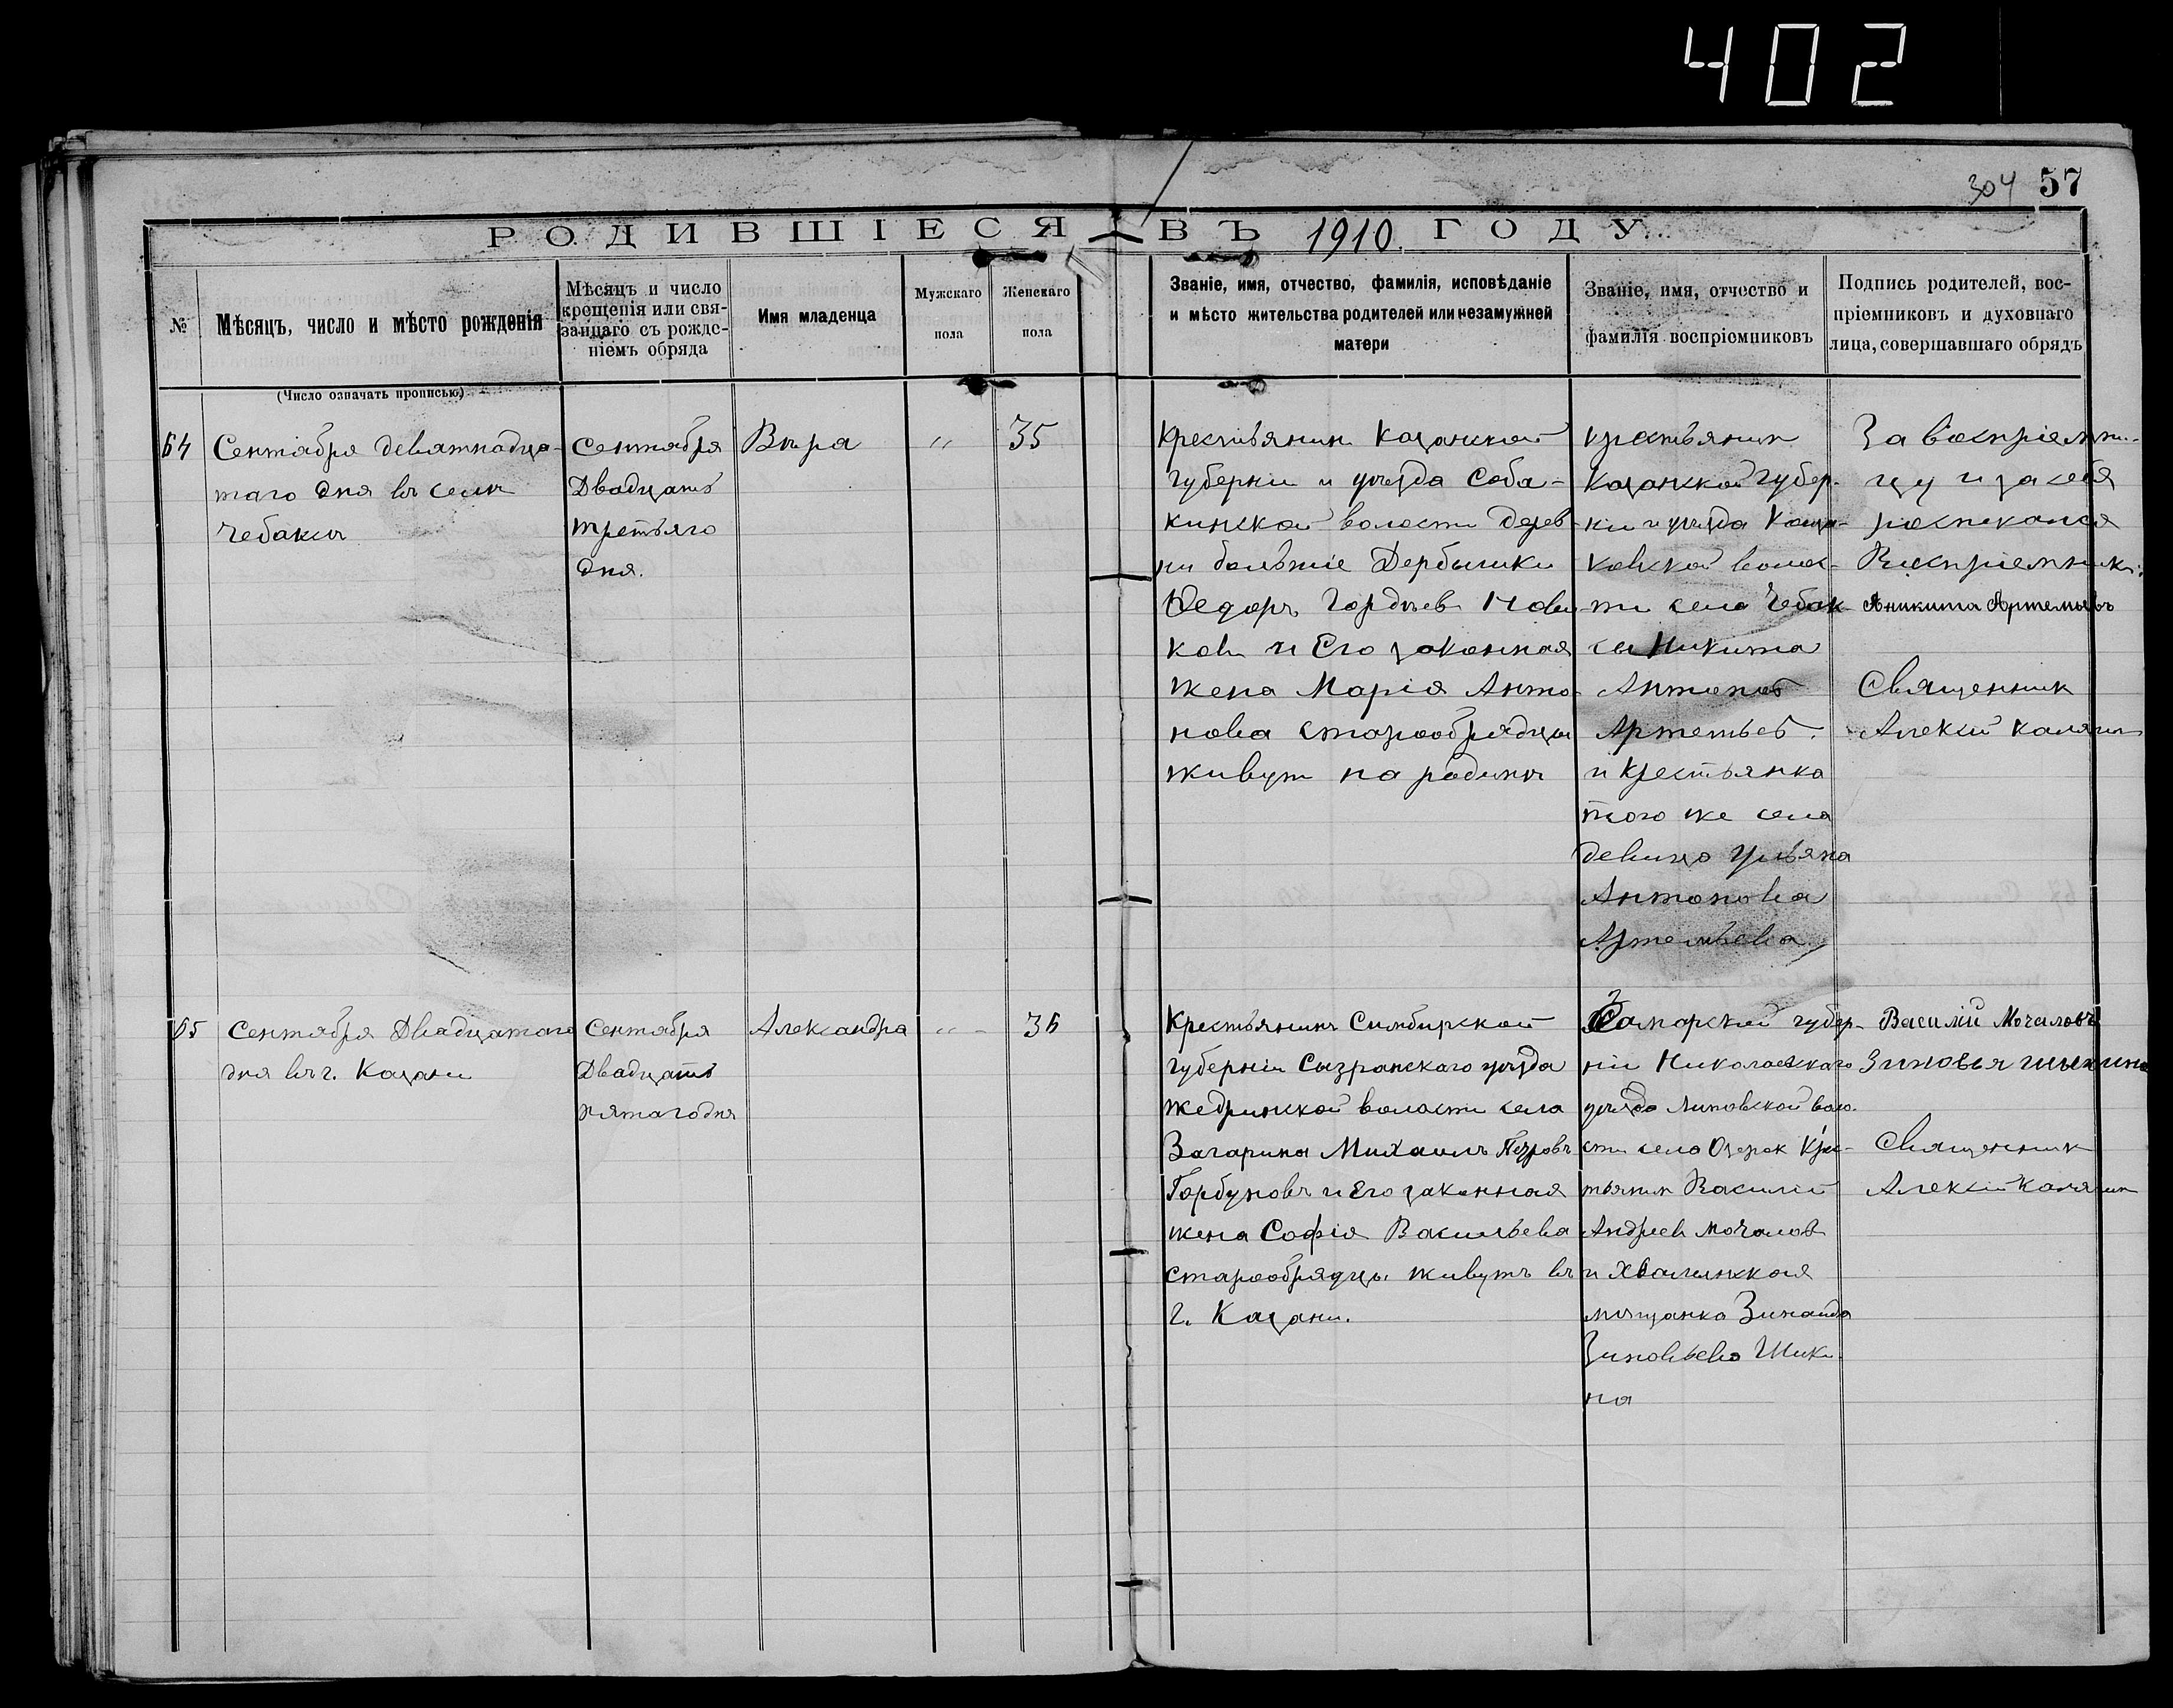 402
304 57
РОДИВШІЕСЯ ВЪ 1910 ГОДУ
№
Мѣсяцъ, число и мѣсто рожденія
Мѣсяцъ и число
крещенія или свя-
заннаго съ рожде-
ніемъ обряда
Имя младенца
Мужскаго
пола
Женскаго
пола
Званіе, имя, отчество, фамилія, исповѣданіе
и мѣсто жительства родителей или незамужней
матери
Званіе, имя, отчество и
фамилія воспріемниковъ
Подпись родителей, вос-
пріемниковъ и духовнаго
лица, совершавшаго обрядъ
(Число означать прописью)
64
Сентября девятнадца-
таго дня въ селѣ
Чебаксѣ
Сентября
Двадцать
третьяго
дня.
Вѣра
„
35
Крестьянин Казанской
губерніи и уѣзда Соба-
кинской волости дерев
ни большіе Дербышки
Ѳедоръ Гордѣев Нови
ков и Его законная
жена Марія Анто
нова старообрядцы
живут на родинѣ
крестьянин
Казанской губер-
ніи и уѣзда Каща-
ковской волос-
ти села Чебак-
сы Никита
Антипов
Артемьев.
и крестьянка
того же села
девица Ульяна
Антонова
Артемьева
За воспріемни-
цу и за себя
росписался
Воспріемник:
Аникита Артемьевъ
Священник
Алексій Калягин
65
Сентября Двадцатаго
дня въ г. Казани
Сентября
Двадцать
пятаго дня
Александра
„ -
36
Крестьянинъ Симбирской
губерніи Сызранскаго уѣзда
жедринской волости села
Загарина Михаилъ Петровъ
Горбуновъ и Его законная
жена Софія Васильева
старообрядцы живутъ въ
г. Казани.
Самарской губер-
ніи Николаевскаго
уѣзда Липовской воло-
сти села Озерок Крес-
тьянин Василій
Андреев Мочалов
и Хвалынская
мѣщанка Зинаида
Зиновьева Шики
на
Василій Мочаловъ
Зиновья шыкина
Священник
Алексій Калягин